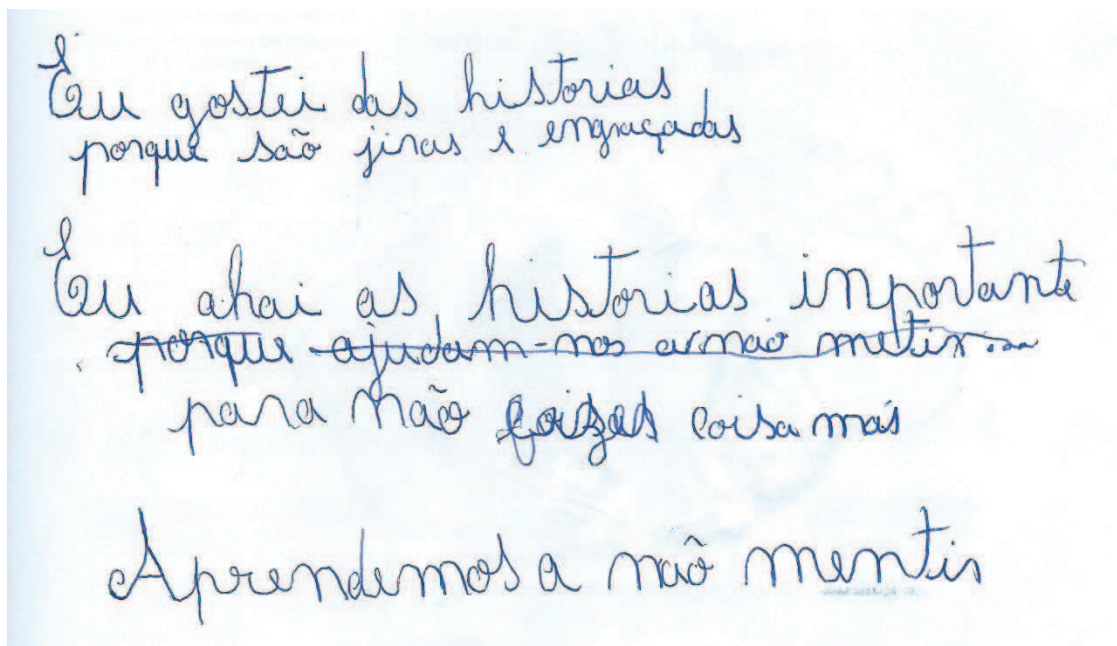 Eu gostei das historias
porque são jiras e engraçadas
Eu ahai as historias inportante
porque ajudam-nos a não metir...
para não coisa más
Aprendemos a não mentir